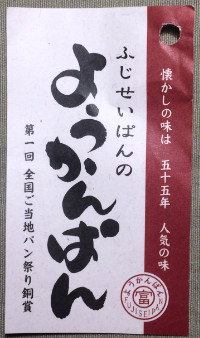 懐かしの味は 五十五年 人気の味
ふじせいぱんの
ようかんぱん
第一回 全国ご当地パン祭り銅賞
ようかんぱん
富
FUJISEIPAN